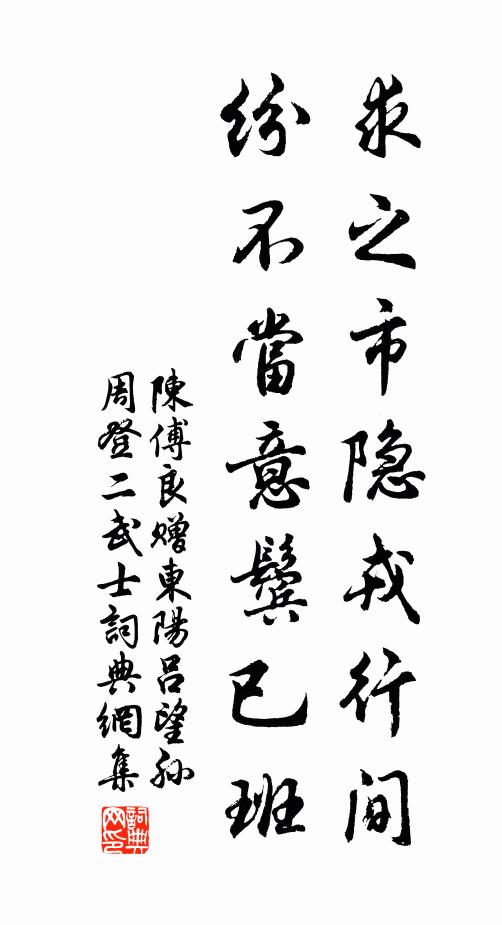 求之市隐戎行间
纷不當意鬓已班
陳傅良赠東陽吕望孙
周登二武士詞典網集
詞典
网印